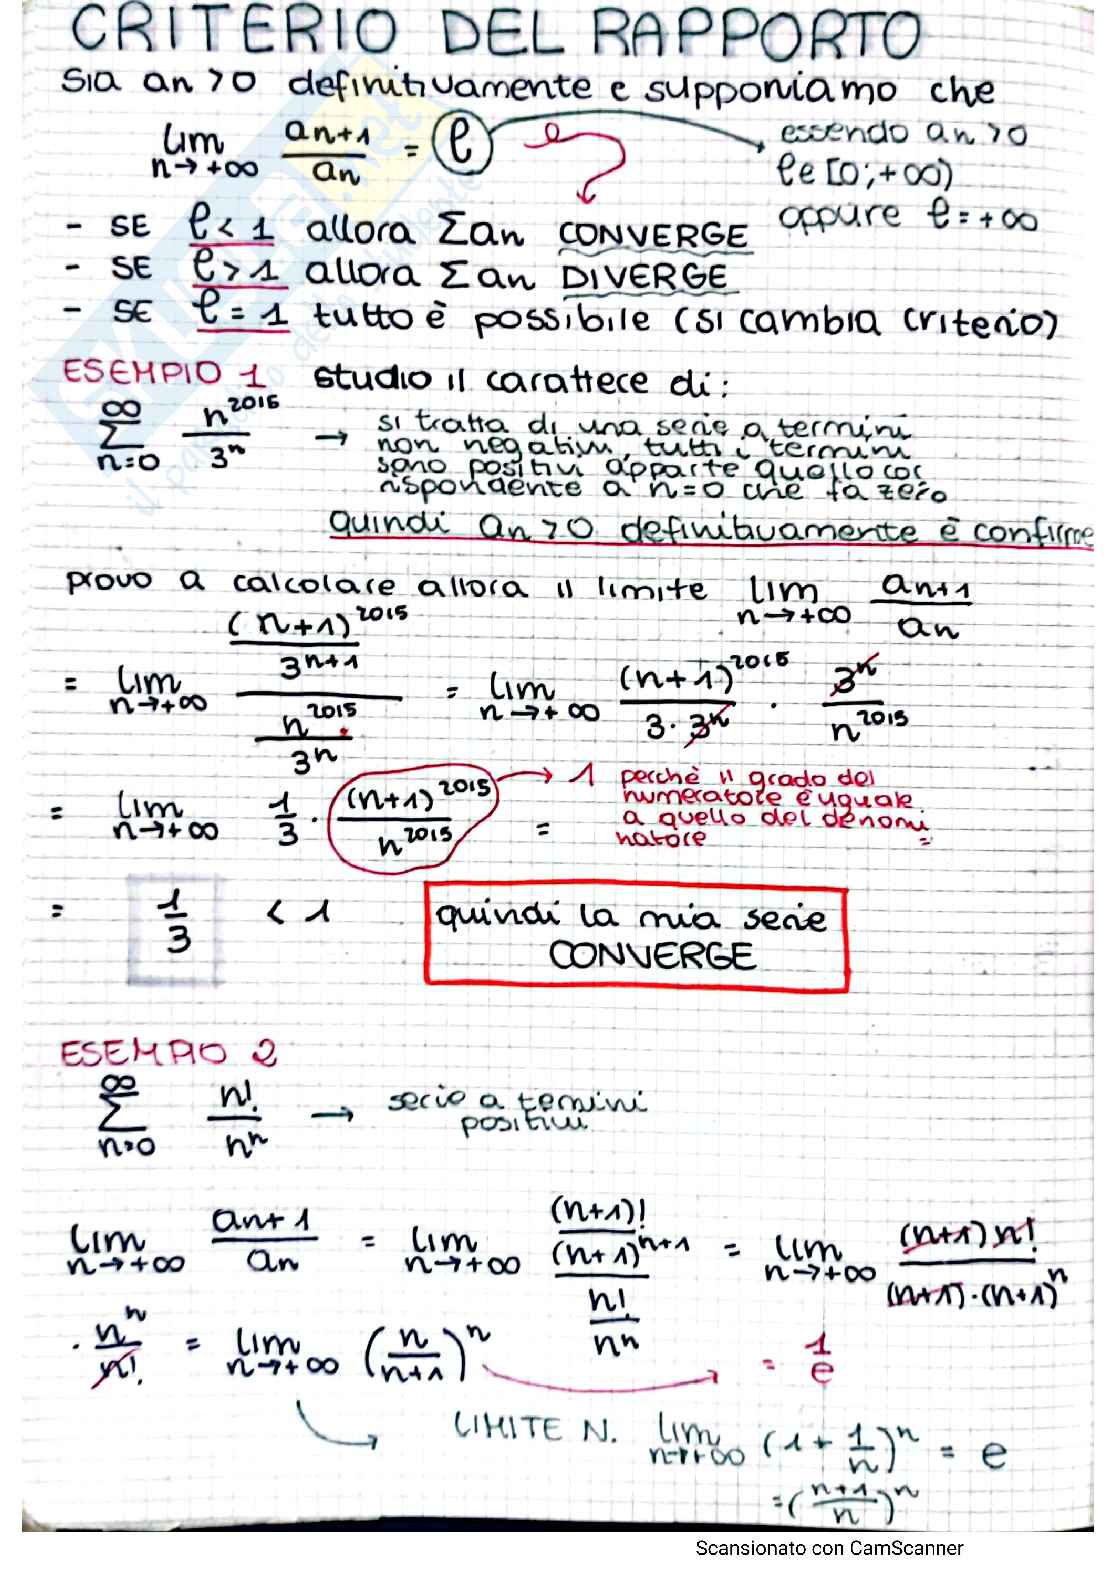 CRITERIO DEL RAPPORTO
Sia an >0 definitivamente e supponiamo che
lim n→+∞ an+1/an = ℓ
essendo an >0
ℓ∈[0;+∞)
oppure ℓ=+∞
- SE ℓ < 1 allora Σan CONVERGE
- SE ℓ > 1 allora Σan DIVERGE
- SE ℓ = 1 tutto è possibile (si cambia criterio)
ESEMPIO 1 studio il carattere di:
∞ Σ n=0 n^2015/3^n → si tratta di una serie a termini
non negativi, tutti i termini
sono positivi apparte quello cor
rispondente a n=0 che fa zero
quindi an >0 definitivamente è confirme
provo a calcolare allora il limite lim n→+∞ an+1/an
= lim n→+∞ ((n+1)^2015/3^n+1)/(n^2015/3^n) = lim n→+∞ (n+1)^2015/3·3^n · 3^n/n^2015
= lim n→+∞ 1/3 · (n+1)^2015/n^2015 =
→ 1 perchè il grado del
numeratore è uguale
a quello del denomi
natore
= 1/3 < 1
quindi la mia serie
CONVERGE
ESEMPIO 2
∞ Σ n=0 n!/n^n → serie a termini
positivi
lim n→+∞ an+1/an = lim n→+∞ ((n+1)!/(n+1)^n+1)/(n!/n^n) = lim n→+∞ (n+1) n!/(n+1)·(n+1)^n
· n^n/n! = lim n→+∞ (n/n+1)^n = 1/e
LIMITE N. lim n→+∞ (1+1/n)^n = e
=(n+1/n)^n
Scansionato con CamScanner